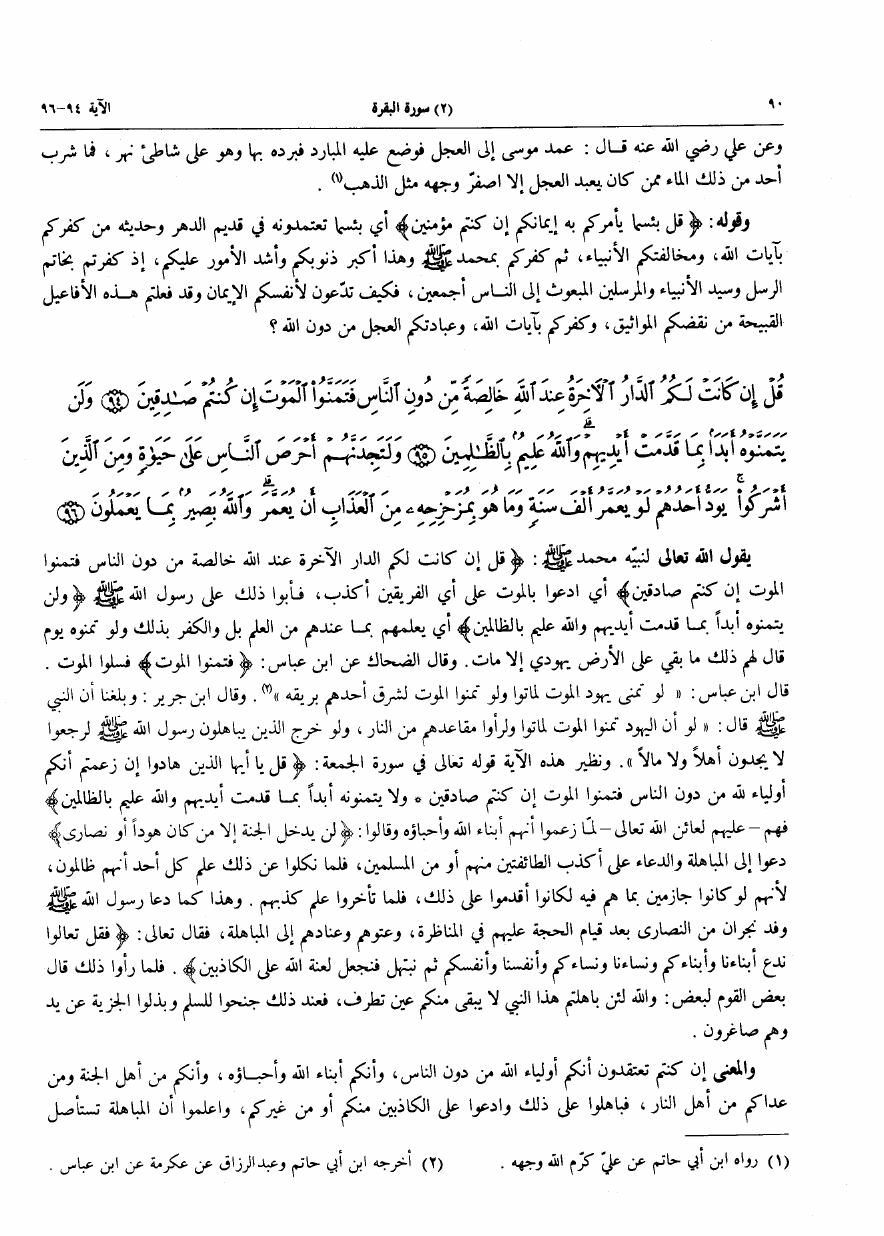 ٩٠
(٢) سورة البقرة
الآية ٩٤-٩٦
وعن علي رضي الله عنه قـال : عمد موسى إلى العجل فوضع عليه المبارد فبرده بها وهو على شاطئ نهر ، فما شرب
أحد من ذلك الماء ممن كان يعبد العجل إلا اصفرّ وجهه مثل الذهب(١) .
وقوله: ﴿ قل بئسما يأمركم به إيمانكم إن كنتم مؤمنين﴾ أي بئسما تعتمدونه في قديم الدهر وحديثه من كفركم
بآيات الله، ومخالفتكم الأنبياء، ثم كفركم بمحمد ﷺ وهذا أكبر ذنوبكم وأشد الأمور عليكم، إذ كفرتم بخاتم
الرسل وسيد الأنبياء والمرسلين المبعوث إلى النـاس أجمعين، فكيف تدّعون لأنفسكم الإيمان وقد فعلتم هـذه الأفاعيل
القبيحة من نقضكم المواثيق، وكفركم بآيات الله، وعبادتكم العجل من دون الله ؟
قُلْ إِن كَانَتْ لَكُمُ ٱلدَّارُ ٱلْآخِرَةُ عِندَ ٱللَّهِ خَالِصَةً مِّن دُونِ ٱلنَّاسِ فَتَمَنَّوُا۟ ٱلْمَوْتَ إِن كُنتُمْ صَـٰدِقِينَ ﴿٩٤﴾ وَلَن
يَتَمَنَّوْهُ أَبَدًۢا بِمَا قَدَّمَتْ أَيْدِيهِمْ ۗ وَٱللَّهُ عَلِيمٌۢ بِٱلظَّـٰلِمِينَ ﴿٩٥﴾ وَلَتَجِدَنَّهُمْ أَحْرَصَ ٱلنَّاسِ عَلَىٰ حَيَوٰةٍ وَمِنَ ٱلَّذِينَ
أَشْرَكُوا۟ ۚ يَوَدُّ أَحَدُهُمْ لَوْ يُعَمَّرُ أَلْفَ سَنَةٍ وَمَا هُوَ بِمُزَحْزِحِهِۦ مِنَ ٱلْعَذَابِ أَن يُعَمَّرَ ۗ وَٱللَّهُ بَصِيرٌۢ بِمَا يَعْمَلُونَ ﴿٩٦﴾
يقول الله تعالى لنبيّه محمد ﷺ : ﴿ قل إن كانت لكم الدار الآخرة عند الله خالصة من دون الناس فتمنوا
الموت إن كنتم صادقين﴾ أي ادعوا بالموت على أي الفريقين أكذب، فـأبوا ذلك على رسول الله ﷺ ﴿ولن
يتمنوه أبداً بمـا قدمت أيديهم والله عليم بالظالمين﴾ أي يعلمهم بمـا عندهم من العلم بل والكفر بذلك ولو تمنوه يوم
قال لهم ذلك ما بقي على الأرض يهودي إلا مات. وقال الضحاك عن ابن عباس: ﴿ فتمنوا الموت﴾ فسلوا الموت .
قال ابن عباس: « لو تمنى يهود الموت لماتوا ولو تمنوا الموت لشرق أحدهم بريقه »(٢). وقال ابن جرير : وبلغنا أن النبي
ﷺ قال: « لو أن اليهود تمنوا الموت لماتوا ولرأوا مقاعدهم من النار ، ولو خرج الذين يباهلون رسول الله ﷺ لرجعوا
لا يجدون أهلاً ولا مالاً ». ونظير هذه الآية قوله تعالى في سورة الجمعة: ﴿ قل يا أيها الذين هادوا إن زعمتم أنكم
أولياء لله من دون الناس فتمنوا الموت إن كنتم صادقين * ولا يتمنونه أبداً بمـا قدمت أيديهم والله عليم بالظالمين﴾
فهم -عليهم لعائن الله تعالى- لمّا زعموا أنهم أبناء الله وأحباؤه وقالوا: ﴿لن يدخل الجنة إلا من كان هوداً أو نصارى﴾
دعوا إلى المباهلة والدعاء على أكذب الطائفتين منهم أو من المسلمين، فلما نكلوا عن ذلك علم كل أحد أنهم ظالمون،
لأنهم لو كانوا جازمين بما هم فيه لكانوا أقدموا على ذلك، فلما تأخروا علم كذبهم . وهذا كما دعا رسول الله ﷺ
وفد نجران من النصارى بعد قيام الحجة عليهم في المناظرة، وعتوهم وعنادهم إلى المباهلة، فقال تعالى: ﴿ فقل تعالوا
ندع أبناءنا وأبناءكم ونساءنا ونساءكم وأنفسنا وأنفسكم ثم نبتهل فنجعل لعنة الله على الكاذبين﴾ . فلما رأوا ذلك قال
بعض القوم لبعض: والله لئن باهلتم هذا النبي لا يبقى منكم عين تطرف، فعند ذلك جنحوا للسلم وبذلوا الجزية عن يد
وهم صاغرون .
والمعنى إن كنتم تعتقدون أنكم أولياء الله من دون الناس، وأنكم أبناء الله وأحبـاؤه ، وأنكم من أهل الجنة ومن
عداكم من أهل النار ، فباهلوا على ذلك وادعوا على الكاذبين منكم أو من غيركم، واعلموا أن المباهلة تستأصل
(١) رواه ابن أبي حاتم عن عليّ كرّم الله وجهه .
(٢) أخرجه ابن أبي حاتم وعبدالرزاق عن عكرمة عن ابن عباس .